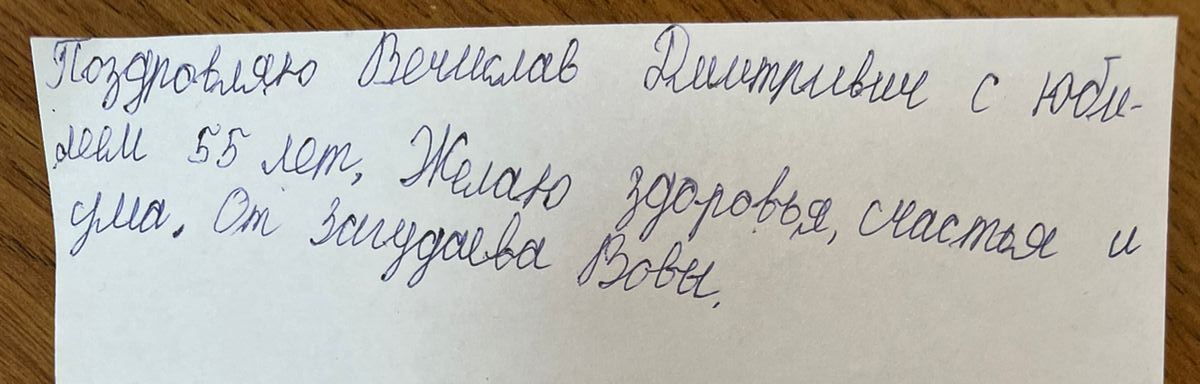 Поздровляю Вечислав Дмитривич с юби-
леем 55 лет, Желаю здоровья, счастья и
ума. От Загудаева Вовы.